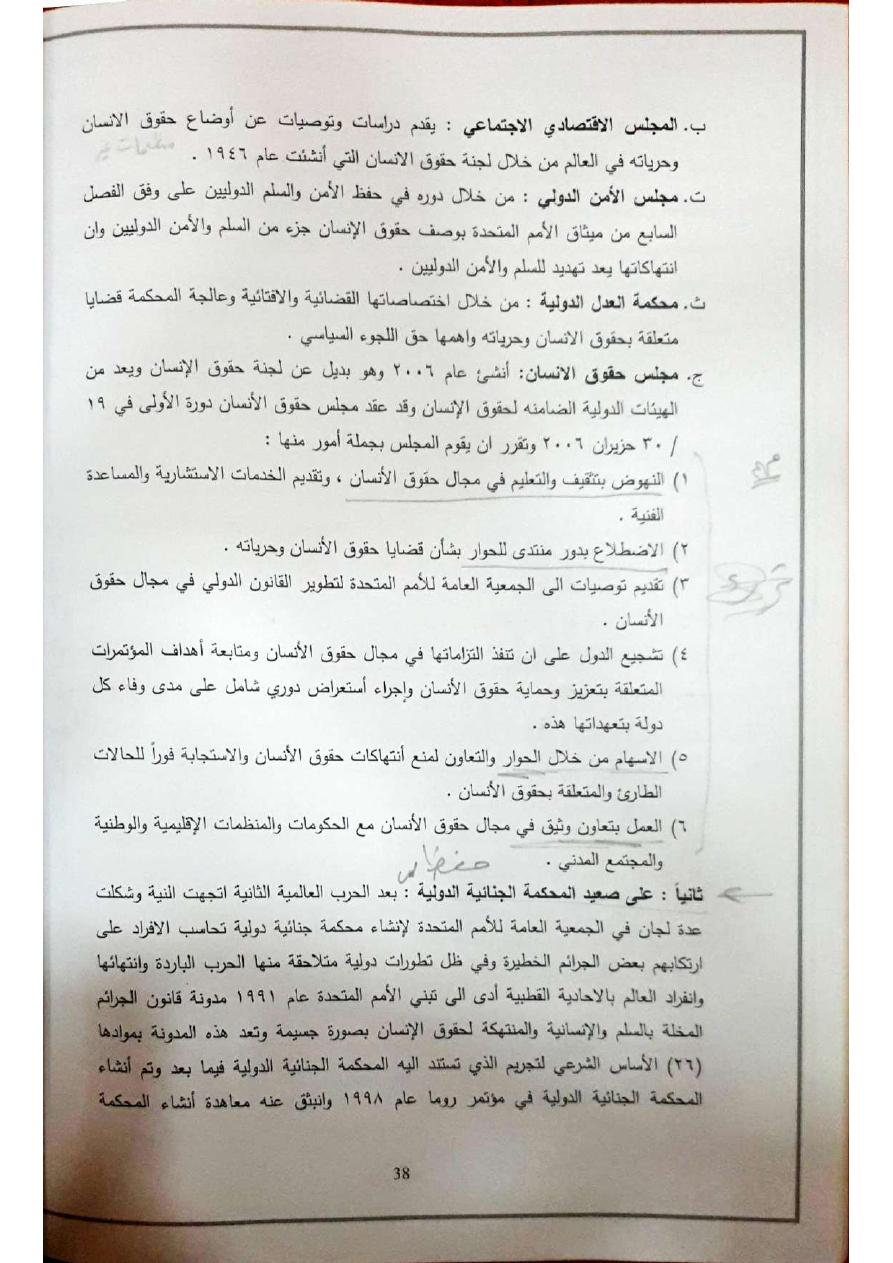 ب. المجلس الاقتصادي الاجتماعي : يقدم دراسات وتوصيات عن أوضاع حقوق الانسان
وحرياته في العالم من خلال لجنة حقوق الانسان التي أنشئت عام ١٩٤٦ .
ت. مجلس الأمن الدولي : من خلال دوره في حفظ الأمن والسلم الدوليين على وفق الفصل
السابع من ميثاق الأمم المتحدة بوصف حقوق الإنسان جزء من السلم والأمن الدوليين وان
انتهاكاتها يعد تهديد للسلم والأمن الدوليين .
ث. محكمة العدل الدولية : من خلال اختصاصاتها القضائية والافتائية وعالجة المحكمة قضايا
متعلقة بحقوق الانسان وحرياته واهمها حق اللجوء السياسي .
ج. مجلس حقوق الانسان: أنشئ عام ٢٠٠٦ وهو بديل عن لجنة حقوق الإنسان ويعد من
الهيئات الدولية الضامنه لحقوق الإنسان وقد عقد مجلس حقوق الأنسان دورة الأولى في ١٩
/ ٣٠ حزيران ٢٠٠٦ وتقرر ان يقوم المجلس بجملة أمور منها :
١) النهوض بتثقيف والتعليم في مجال حقوق الأنسان ، وتقديم الخدمات الاستشارية والمساعدة
الفنية .
٢) الاضطلاع بدور منتدى للحوار بشأن قضايا حقوق الأنسان وحرياته .
٣) تقديم توصيات الى الجمعية العامة للأمم المتحدة لتطوير القانون الدولي في مجال حقوق
الأنسان .
٤) تشجيع الدول على ان تنفذ التزاماتها في مجال حقوق الأنسان ومتابعة أهداف المؤتمرات
المتعلقة بتعزيز وحماية حقوق الأنسان وإجراء أستعراض دوري شامل على مدى وفاء كل
دولة بتعهداتها هذه .
٥) الاسهام من خلال الحوار والتعاون لمنع أنتهاكات حقوق الأنسان والاستجابة فوراً للحالات
الطارئ والمتعلقة بحقوق الأنسان .
٦) العمل بتعاون وثيق في مجال حقوق الأنسان مع الحكومات والمنظمات الإقليمية والوطنية
والمجتمع المدني .
ثانياً : على صعيد المحكمة الجنائية الدولية : بعد الحرب العالمية الثانية اتجهت النية وشكلت
عدة لجان في الجمعية العامة للأمم المتحدة لإنشاء محكمة جنائية دولية تحاسب الافراد على
ارتكابهم بعض الجرائم الخطيرة وفي ظل تطورات دولية متلاحقة منها الحرب الباردة وانتهائها
وانفراد العالم بالاحادية القطبية أدى الى تبني الأمم المتحدة عام ١٩٩١ مدونة قانون الجرائم
المخلة بالسلم والإنسانية والمنتهكة لحقوق الإنسان بصورة جسيمة وتعد هذه المدونة بموادها
(٢٦) الأساس الشرعي لتجريم الذي تستند اليه المحكمة الجنائية الدولية فيما بعد وتم أنشاء
المحكمة الجنائية الدولية في مؤتمر روما عام ١٩٩٨ وانبثق عنه معاهدة أنشاء المحكمة
38